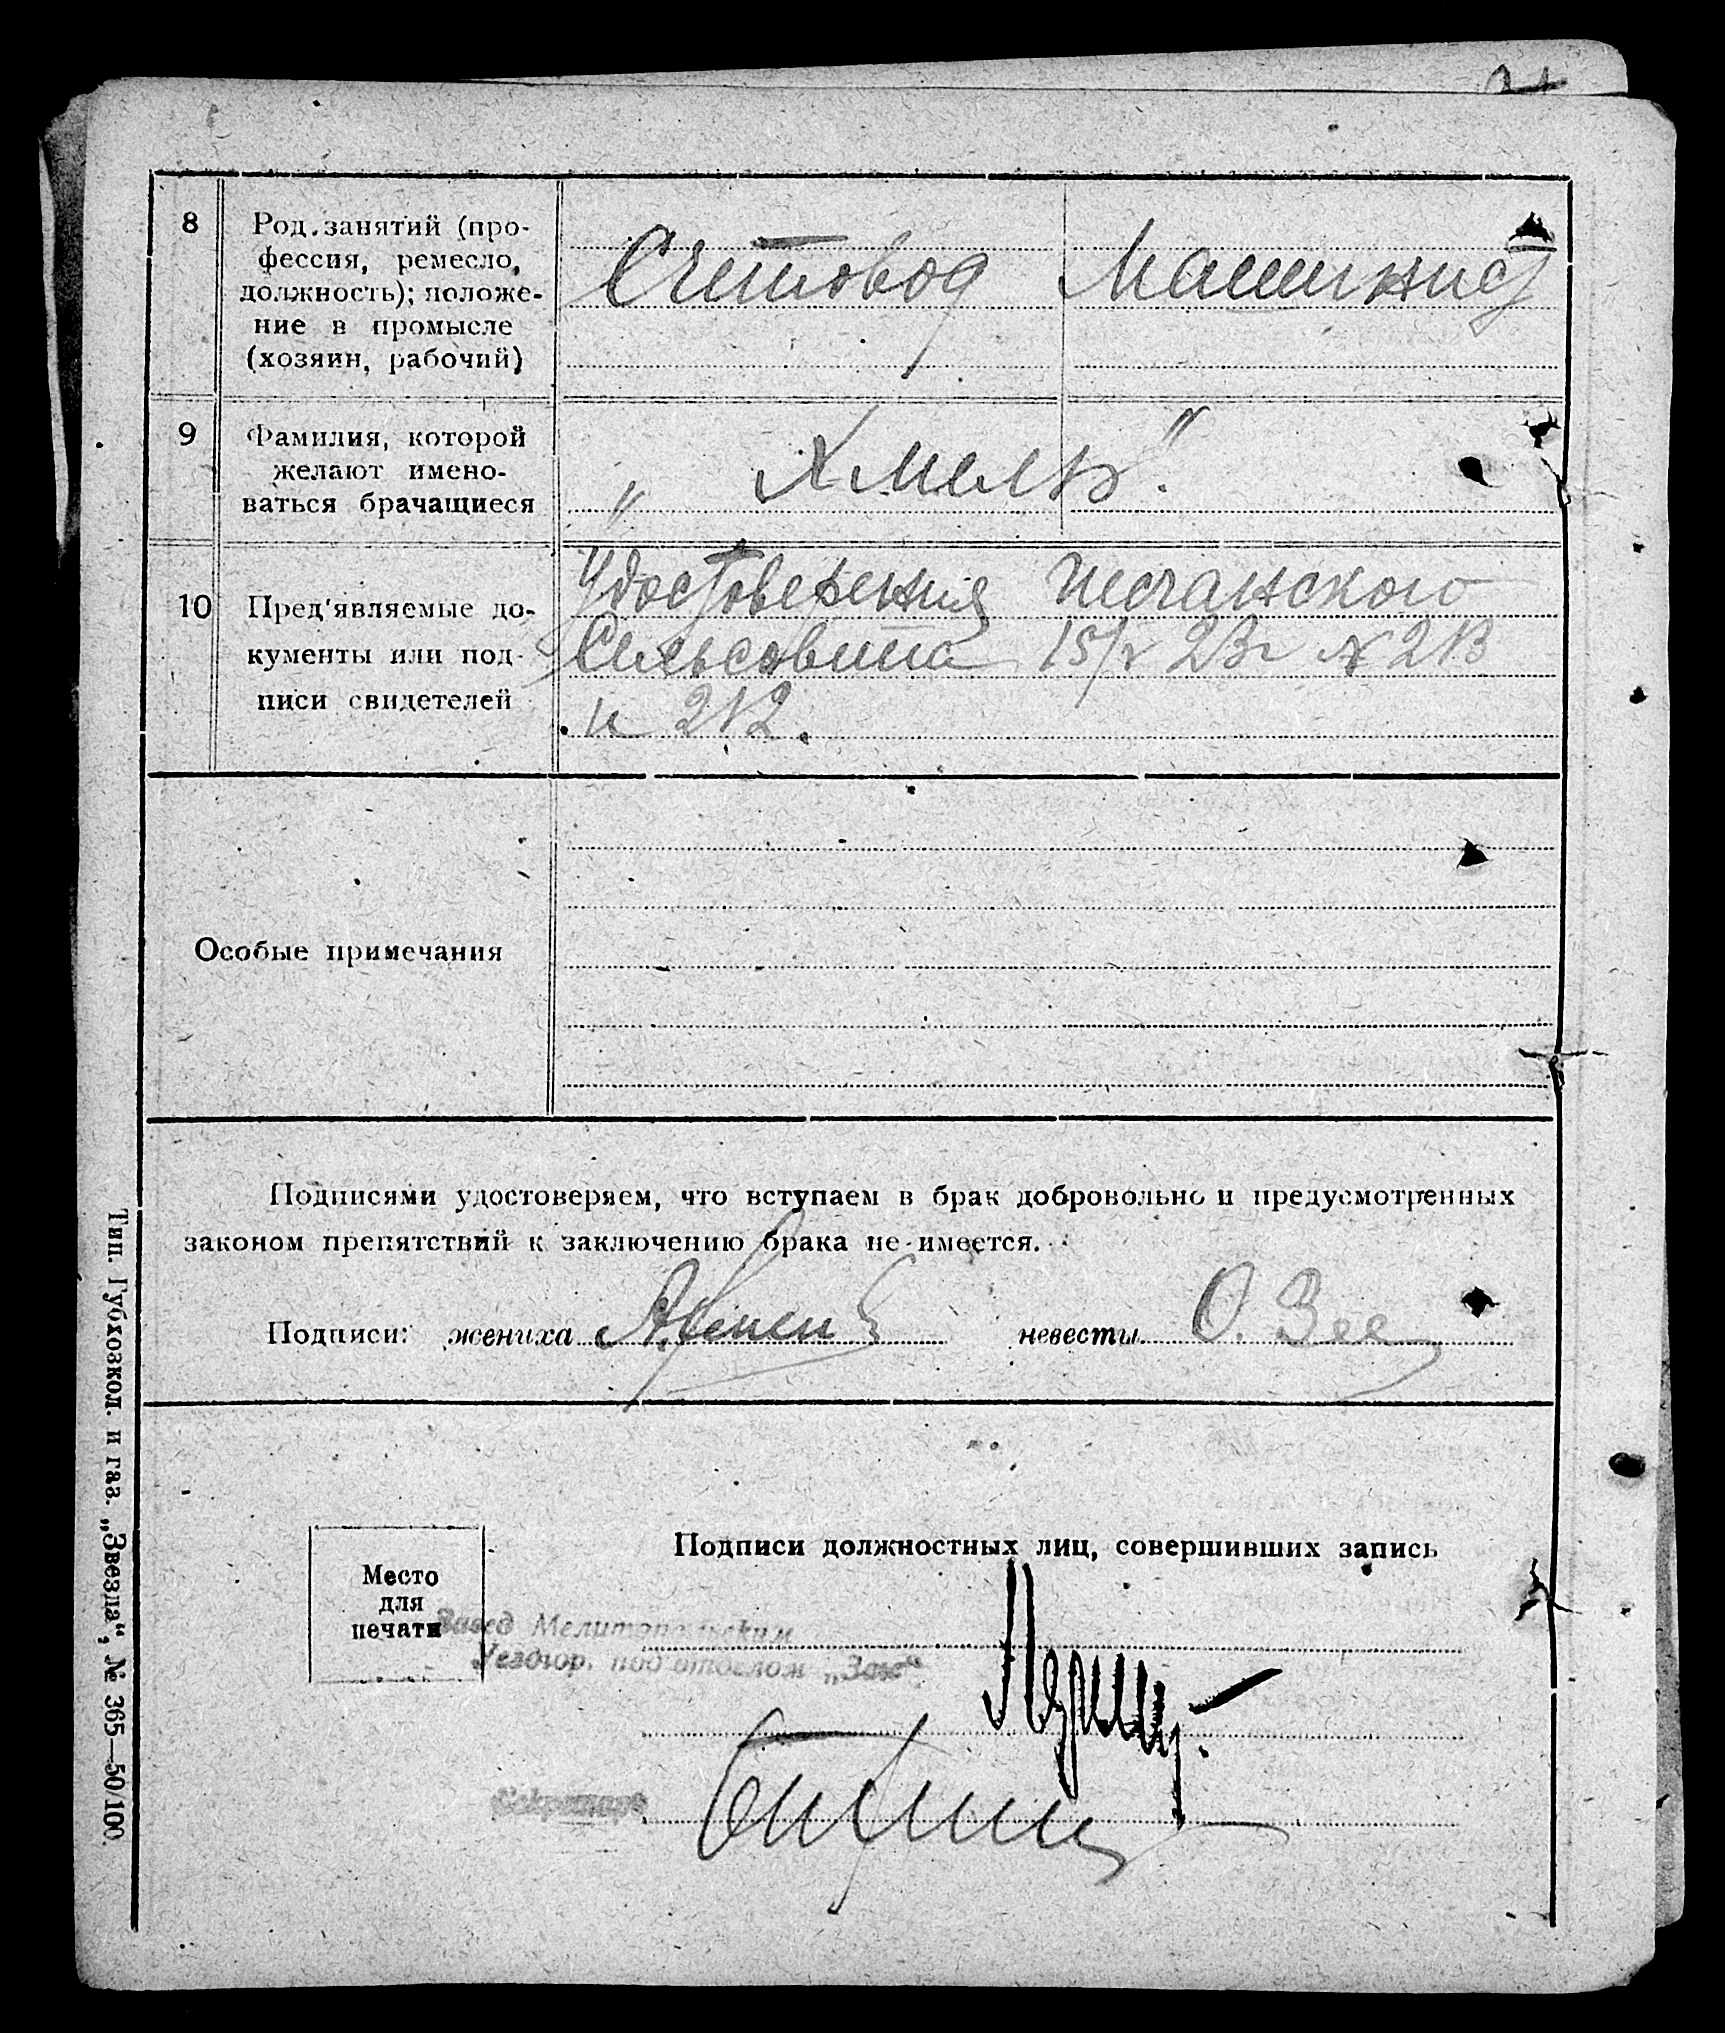 8
Род занятий (про-
фессия, ремесло,
должность); положе-
ние в промысле
(хозяин, рабочий)
Счетовод
Машинист
9
Фамилия, которой
желают имено-
ваться брачащиеся
„ Хмель".
10
Пред'являемые до-
кументы или под-
писи свидетелей
Удостоверения Песчанского
Сельсовета 15/V 23г № 213
и 212.
Особые примечания
Подписями удостоверяем, что вступаем в брак добровольно и предусмотренных
законом препятствий к заключению брака не имеется.
Подписи: жениха
невесты О. Зее
Подписи должностных лиц, совершивших запись
Место
для
печати
Завед Мелитопольским
Уездгор. под отделом „Загс"
Секретарь
Тип. Губхозкол. и газ. „Звезда", № 365—50/100.